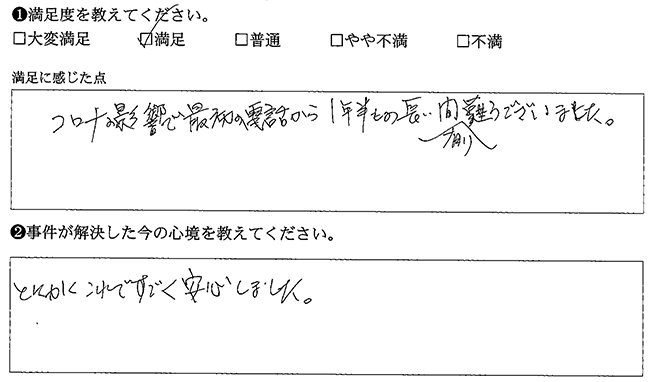 ❶満足度を教えてください。
□大変満足 ☑満足 □普通 □やや不満 □不満
満足に感じた点
コロナの影響で最初の電話から1年半もの長い間有難うございました。
❷事件が解決した今の心境を教えてください。
とにかくこれですごく安心しました。